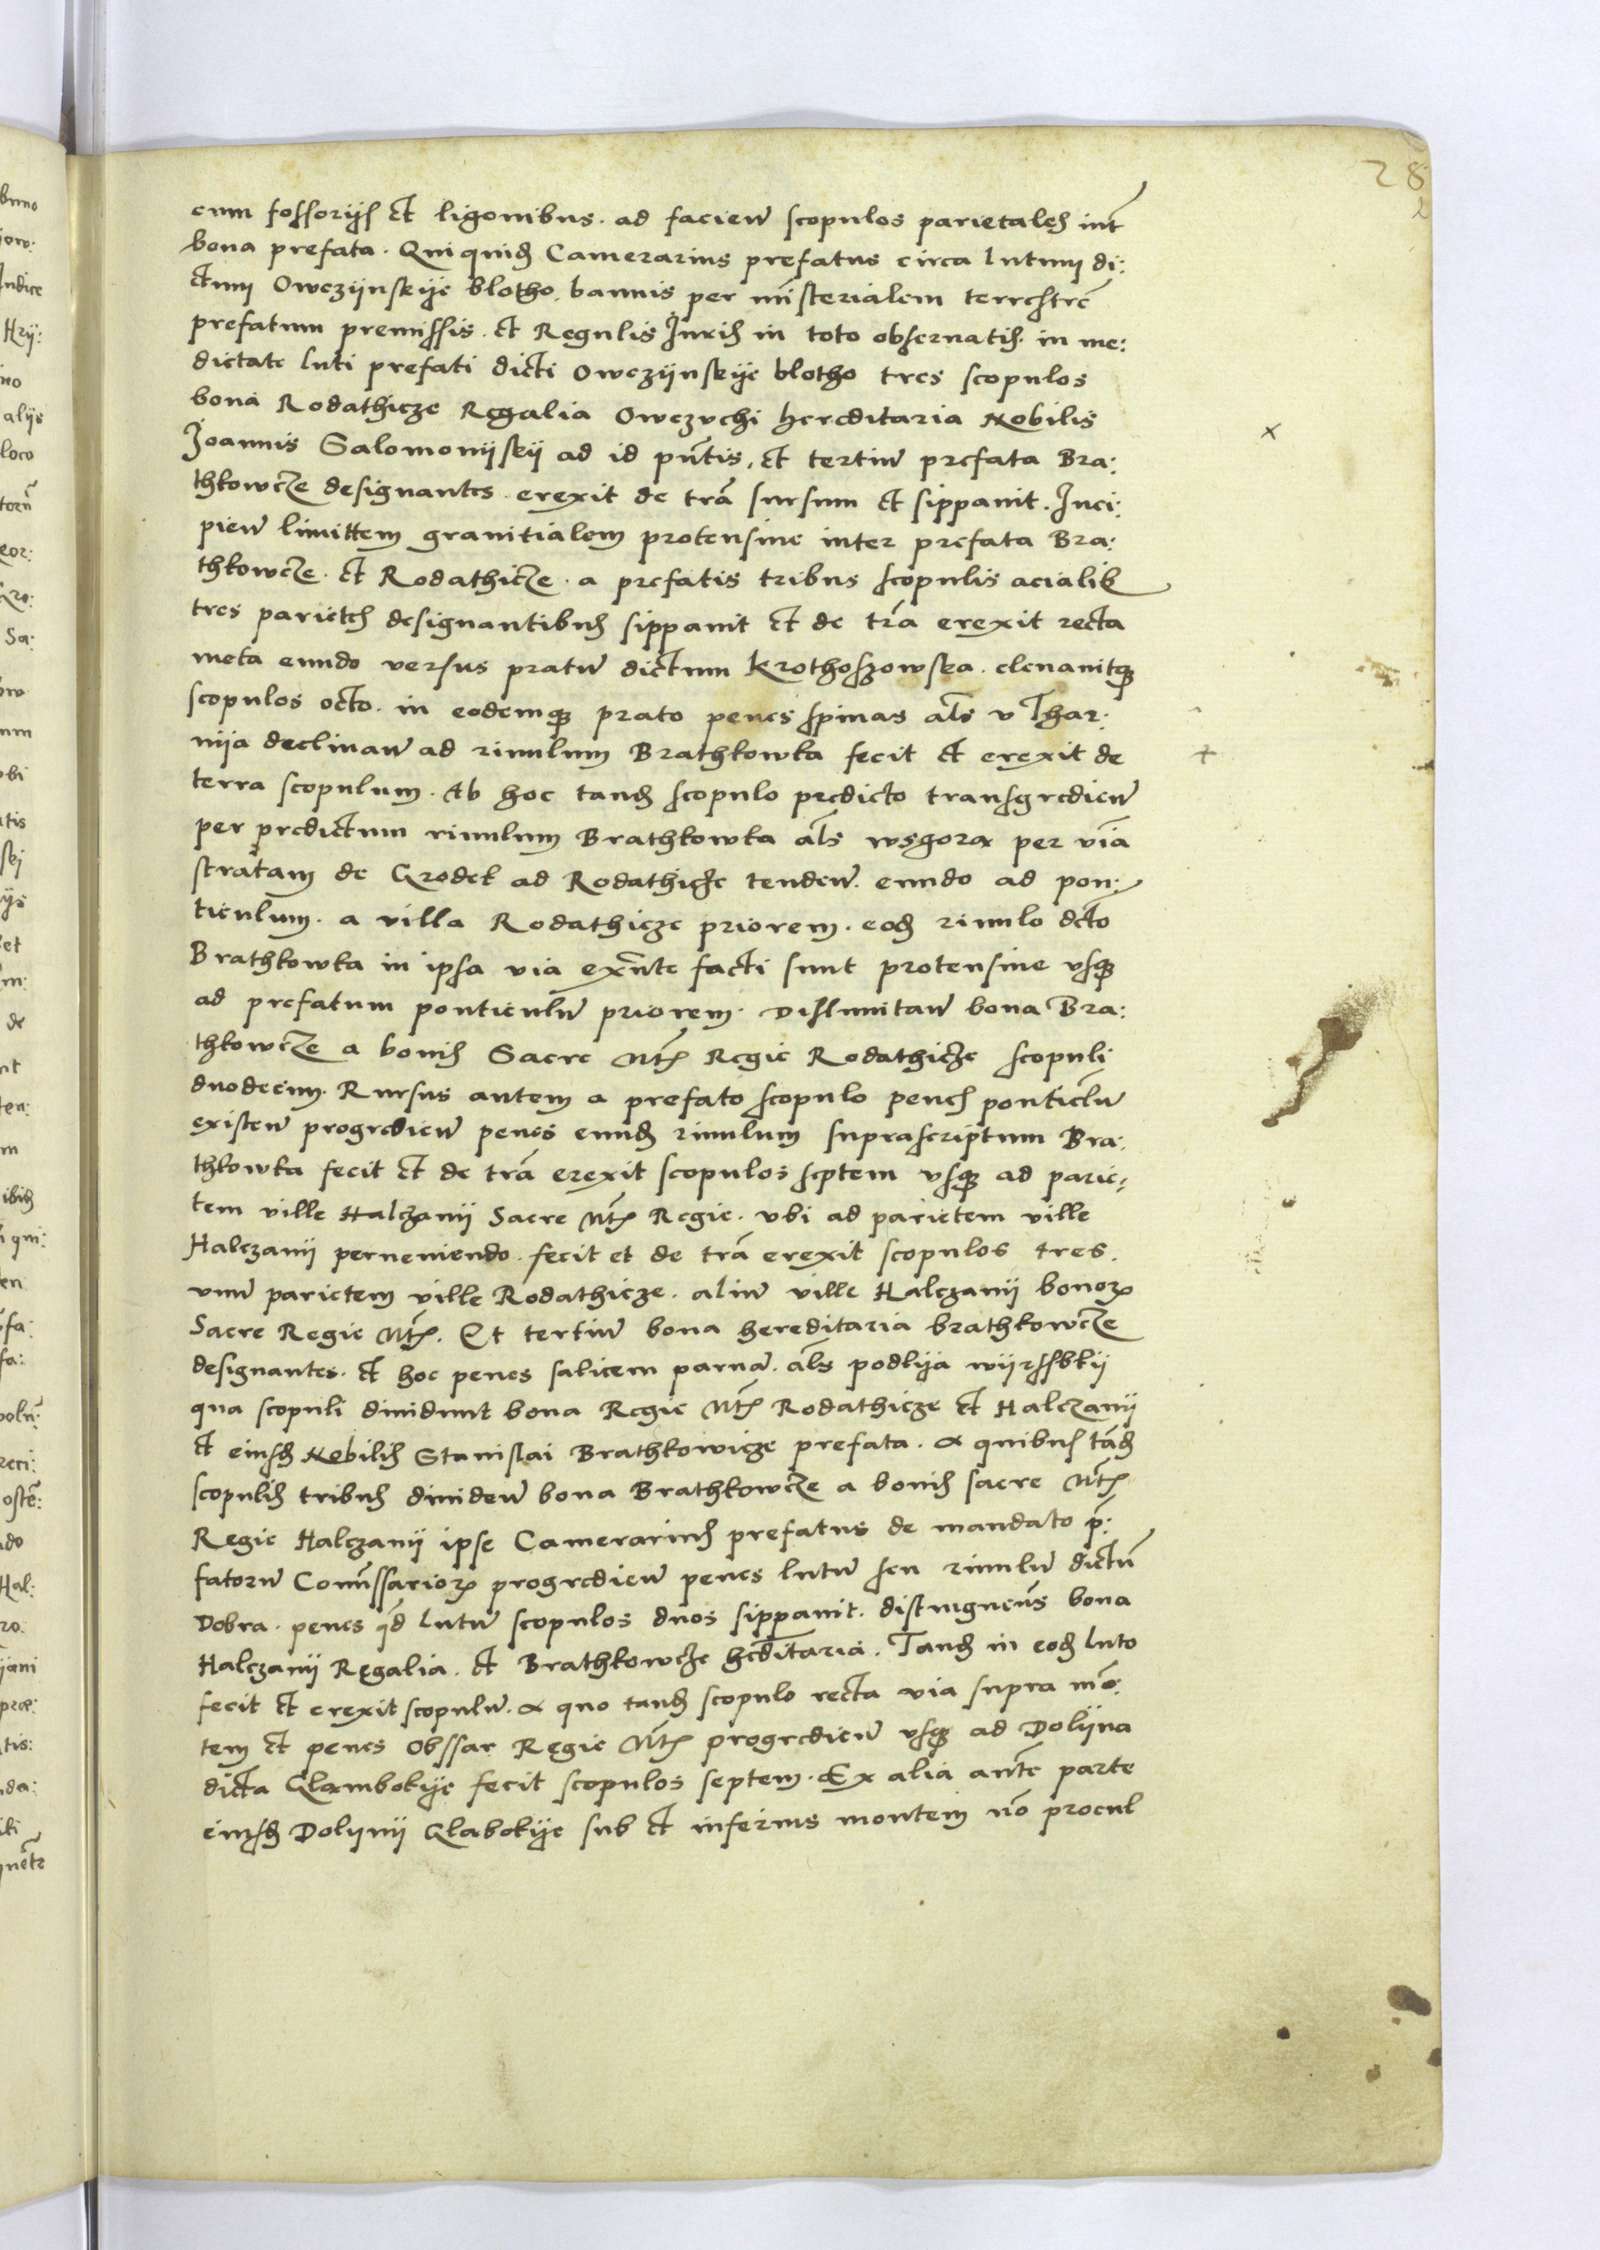 28
2
cum fossoriis et ligonibus. ad facien̄ scopulos parietales int̄
bona prefata. Qui quid Camerarius prefatus circa lutum di:
ctum Owczijnskije blotho. bannis per mīsterialem terrestrē
prefatum premissis. et Regulis Juris in toto obseruatis. in me:
dietate luti prefati dicti Owczijnskije blotho tres scopulos
bona Rodathicze Regalia Owczuchi hereditaria Nobilis
Joannis Salomonijskij ad id pn̄tis, et tertiū prefata Bra:
thkowcze designantes. erexit de trā sursum et sippauit. Inci:
pien̄ limittem granitialem protensiue inter prefata Bra:
thkowcze. et Rodathicze. a prefatis tribus scopulis acialib
tres parietes designantibus sippauit et de trā erexit recta
meta eundo versus pratū dictum Krothoszowska. eleuauitq
scopulos octo. in eodemq prato penes spinas al̄s v Thar:
nija declinan̄ ad riuulum Brathkowka fecit et erexit de
terra scopulum. Ab hoc tand scopulo predicto transgredien̄
per predictum riuulum Brathkowka al̄s wsgora per viā
stratam de Grodek ad Rodathicze tenden̄. eundo ad pon:
ticulum. a villa Rodathicze priorem. eod riuulo dcto
Brathkowka in ipsa via exn̄te facti sunt protensiue vsq
ad prefatum ponticulū priorem. Dislimitan̄ bona Bra:
thkowcze a bonis Sacre Mt̄s Regie Rodathicze scopuli
duodecim. Rursus autem a prefato scopulo penes ponticlū
existen̄ progredien̄ penes eund riuulum suprascriptum Bra:
thkowka fecit et de trā erexit scopulos septem vsq ad parie:
tem ville Halczanij Sacre Mt̄s Regie. vbi ad parietem ville
Halczanij perueniendo. fecit et de trā erexit scopulos tres.
vnū parietem ville Rodathicze. aliū ville Halczanij bonor
Sacre Regie Mt̄s. Et tertiū bona hereditaria brathkowcze
designantes. et hoc penes salicem paruā. al̄s podlija wijrsbkij
qua scopuli diuidunt bona Regie Mt̄s Rodathicze et Halczanij
et eiusd Nobilis Stanislai Brathkowicze prefata. A quibus tād
scopulis tribus diuiden̄ bona Brathkowcze a bonis sacre Mt̄s
Regie Halczanij ipse Camerarius prefatus de mandato p̄:
fatorū Comīssarior progredien̄ penes lutū seu riuulū dictū
Dobra. penes qd lutū scopulos duos sippauit. distingueñs bona
Halczanij Regalia. et Brathkowcze hcd̄itaria. Tand in eod luto
fecit et erexit scopulū. A quo tand scopulo recta via supra mō:
tem et penes Obssar Regie Mt̄s progredien̄ vsq ad Dolijna
dicta Glambokije fecit scopulos septem. Ex alia ant̄e parte
eiusd Dolijnij Glabokije sub et inferius montem nō procul